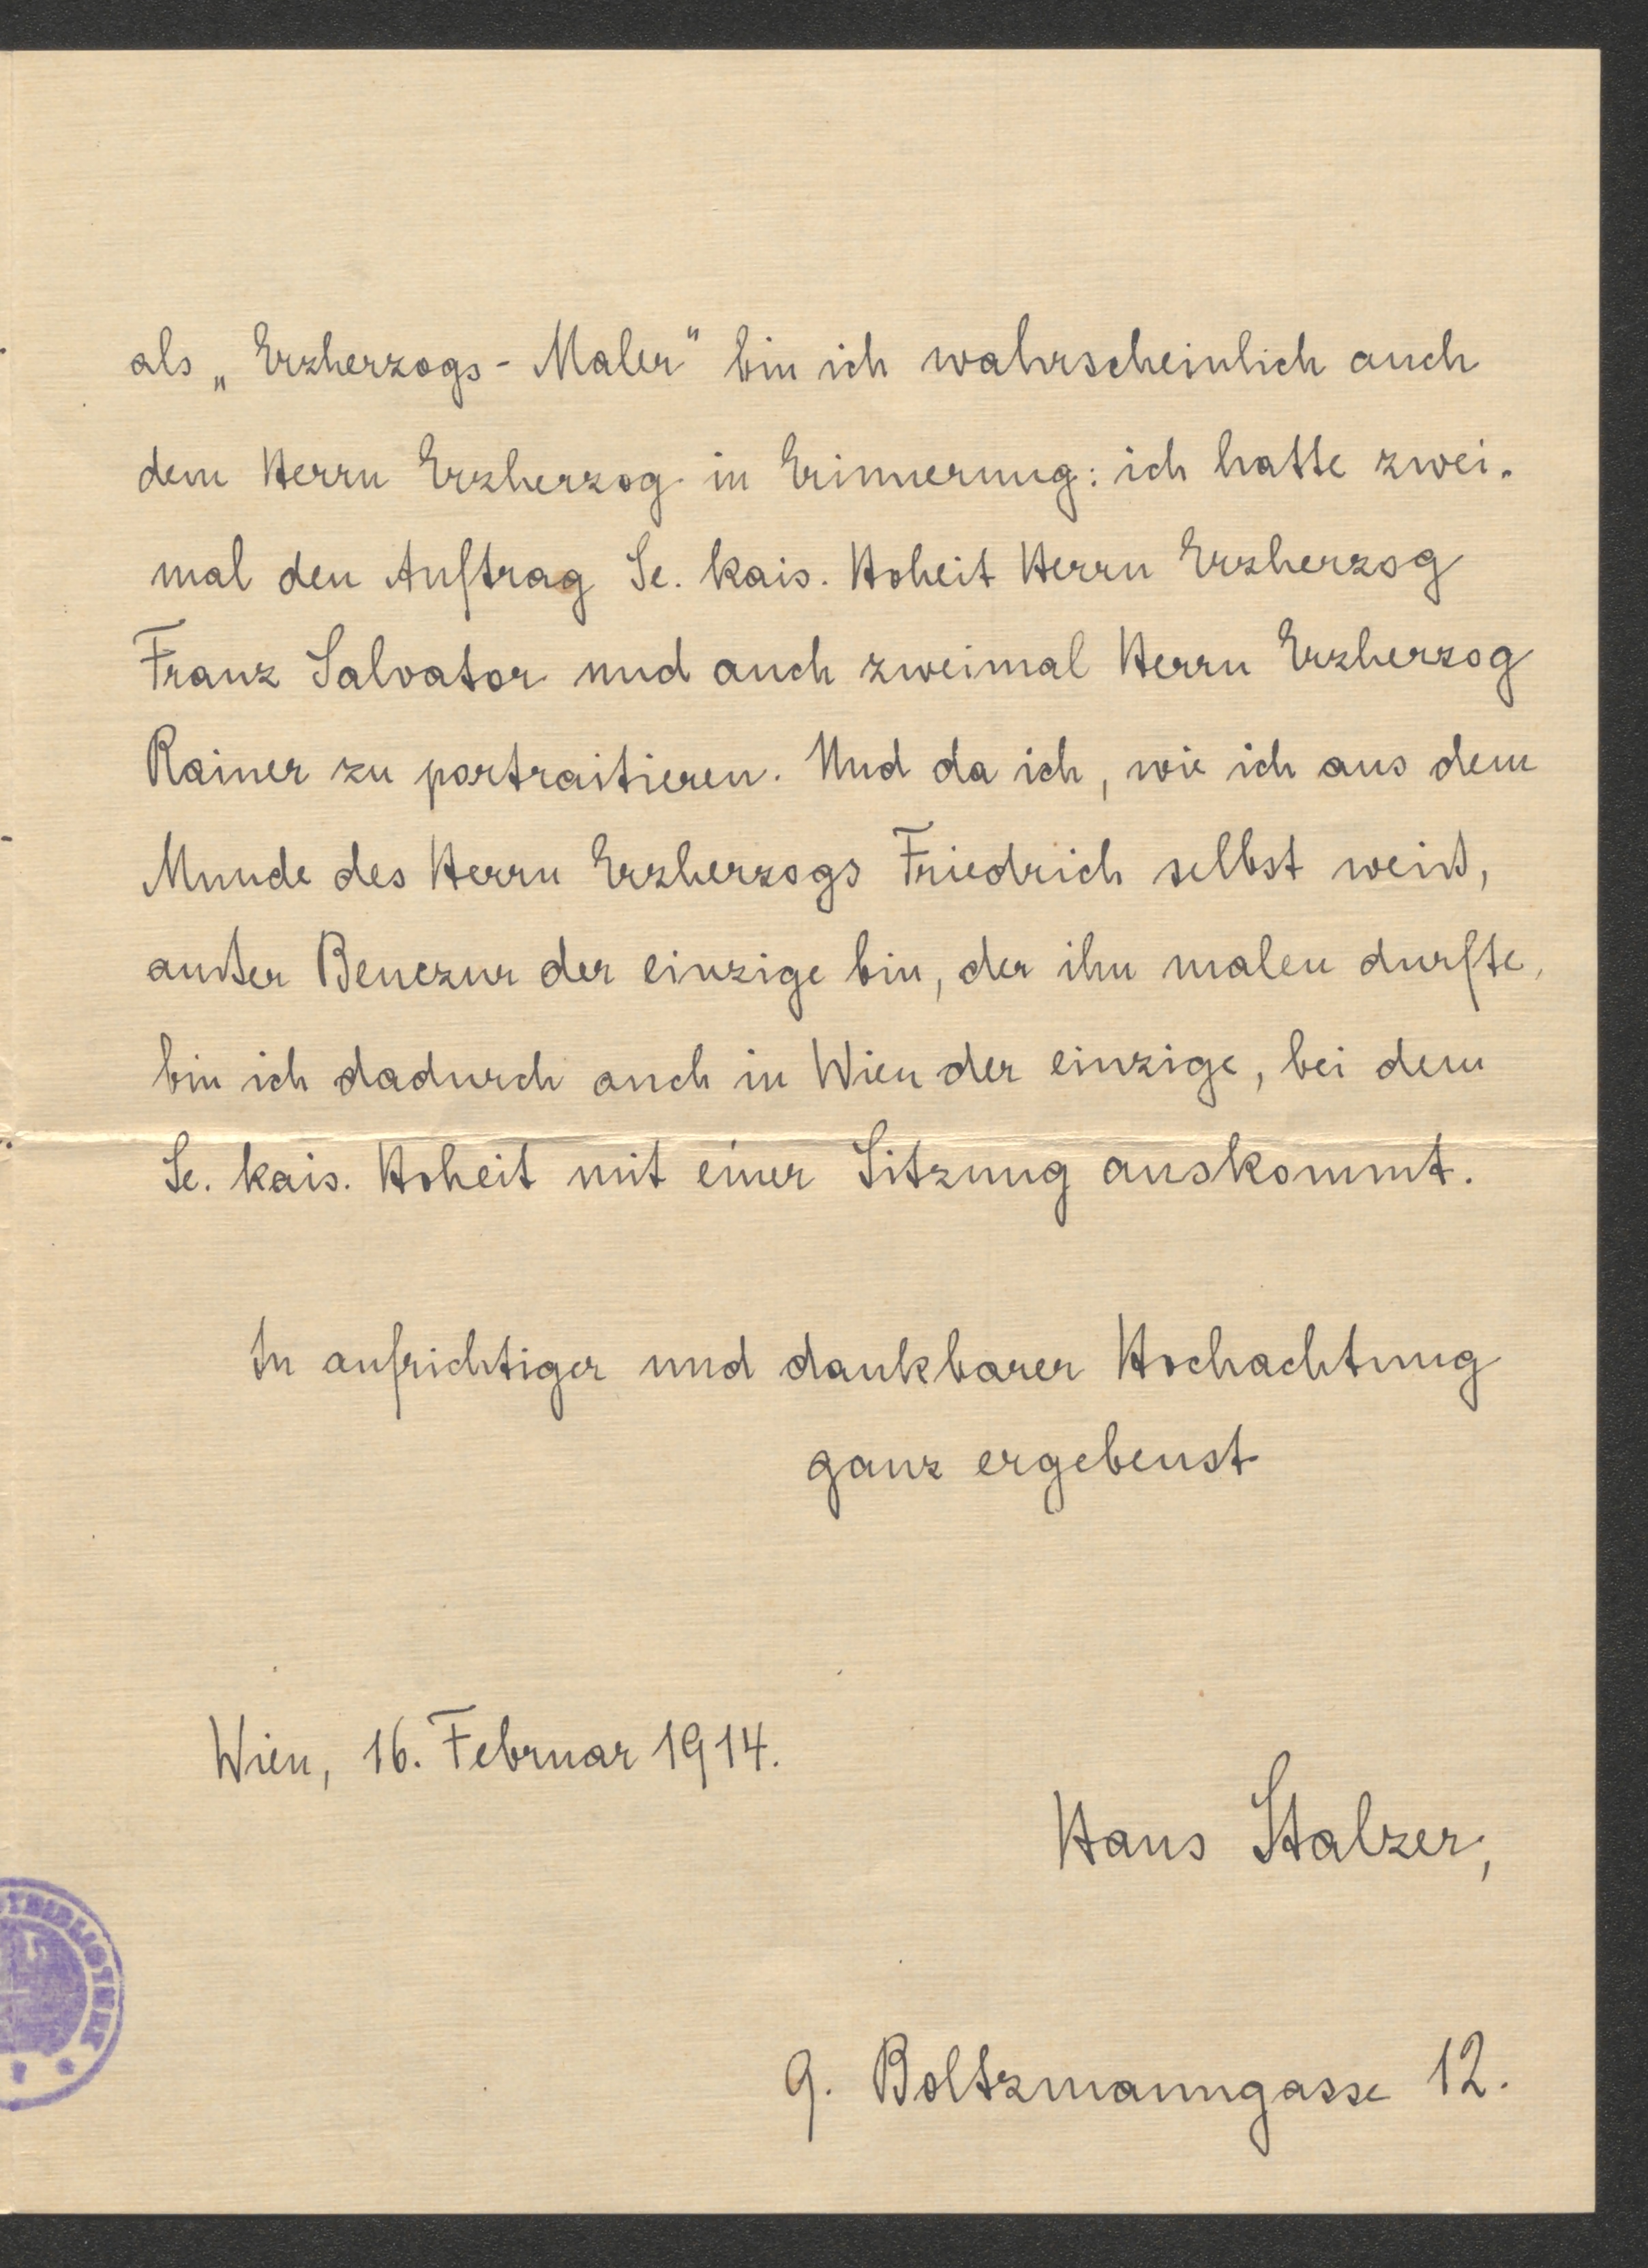 als „Erzherzogs-Maler" bin ich wahrscheinlich auch
dem Herrn Erzherzog in Erinnerung: ich hatte zwei-
mal den Auftrag Se. kais. Hoheit Herrn Erzherzog
Franz Salvator und auch zweimal Herrn Erzherzog
Rainer zu portraitieren. Und da ich, wie ich aus dem
Munde des Herrn Erzherzogs Friedrich selbst weiß,
außer Benczur der einzige bin, der ihn malen durfte,
bin ich dadurch auch in Wien der einzige, bei dem
Se. kais. Hoheit mit einer Sitzung auskommt.
In aufrichtiger und dankbarer Hochachtung
ganz ergebenst
Wien, 16. Februar 1914.
Hans Stalzer,
9. Boltzmanngasse 12.